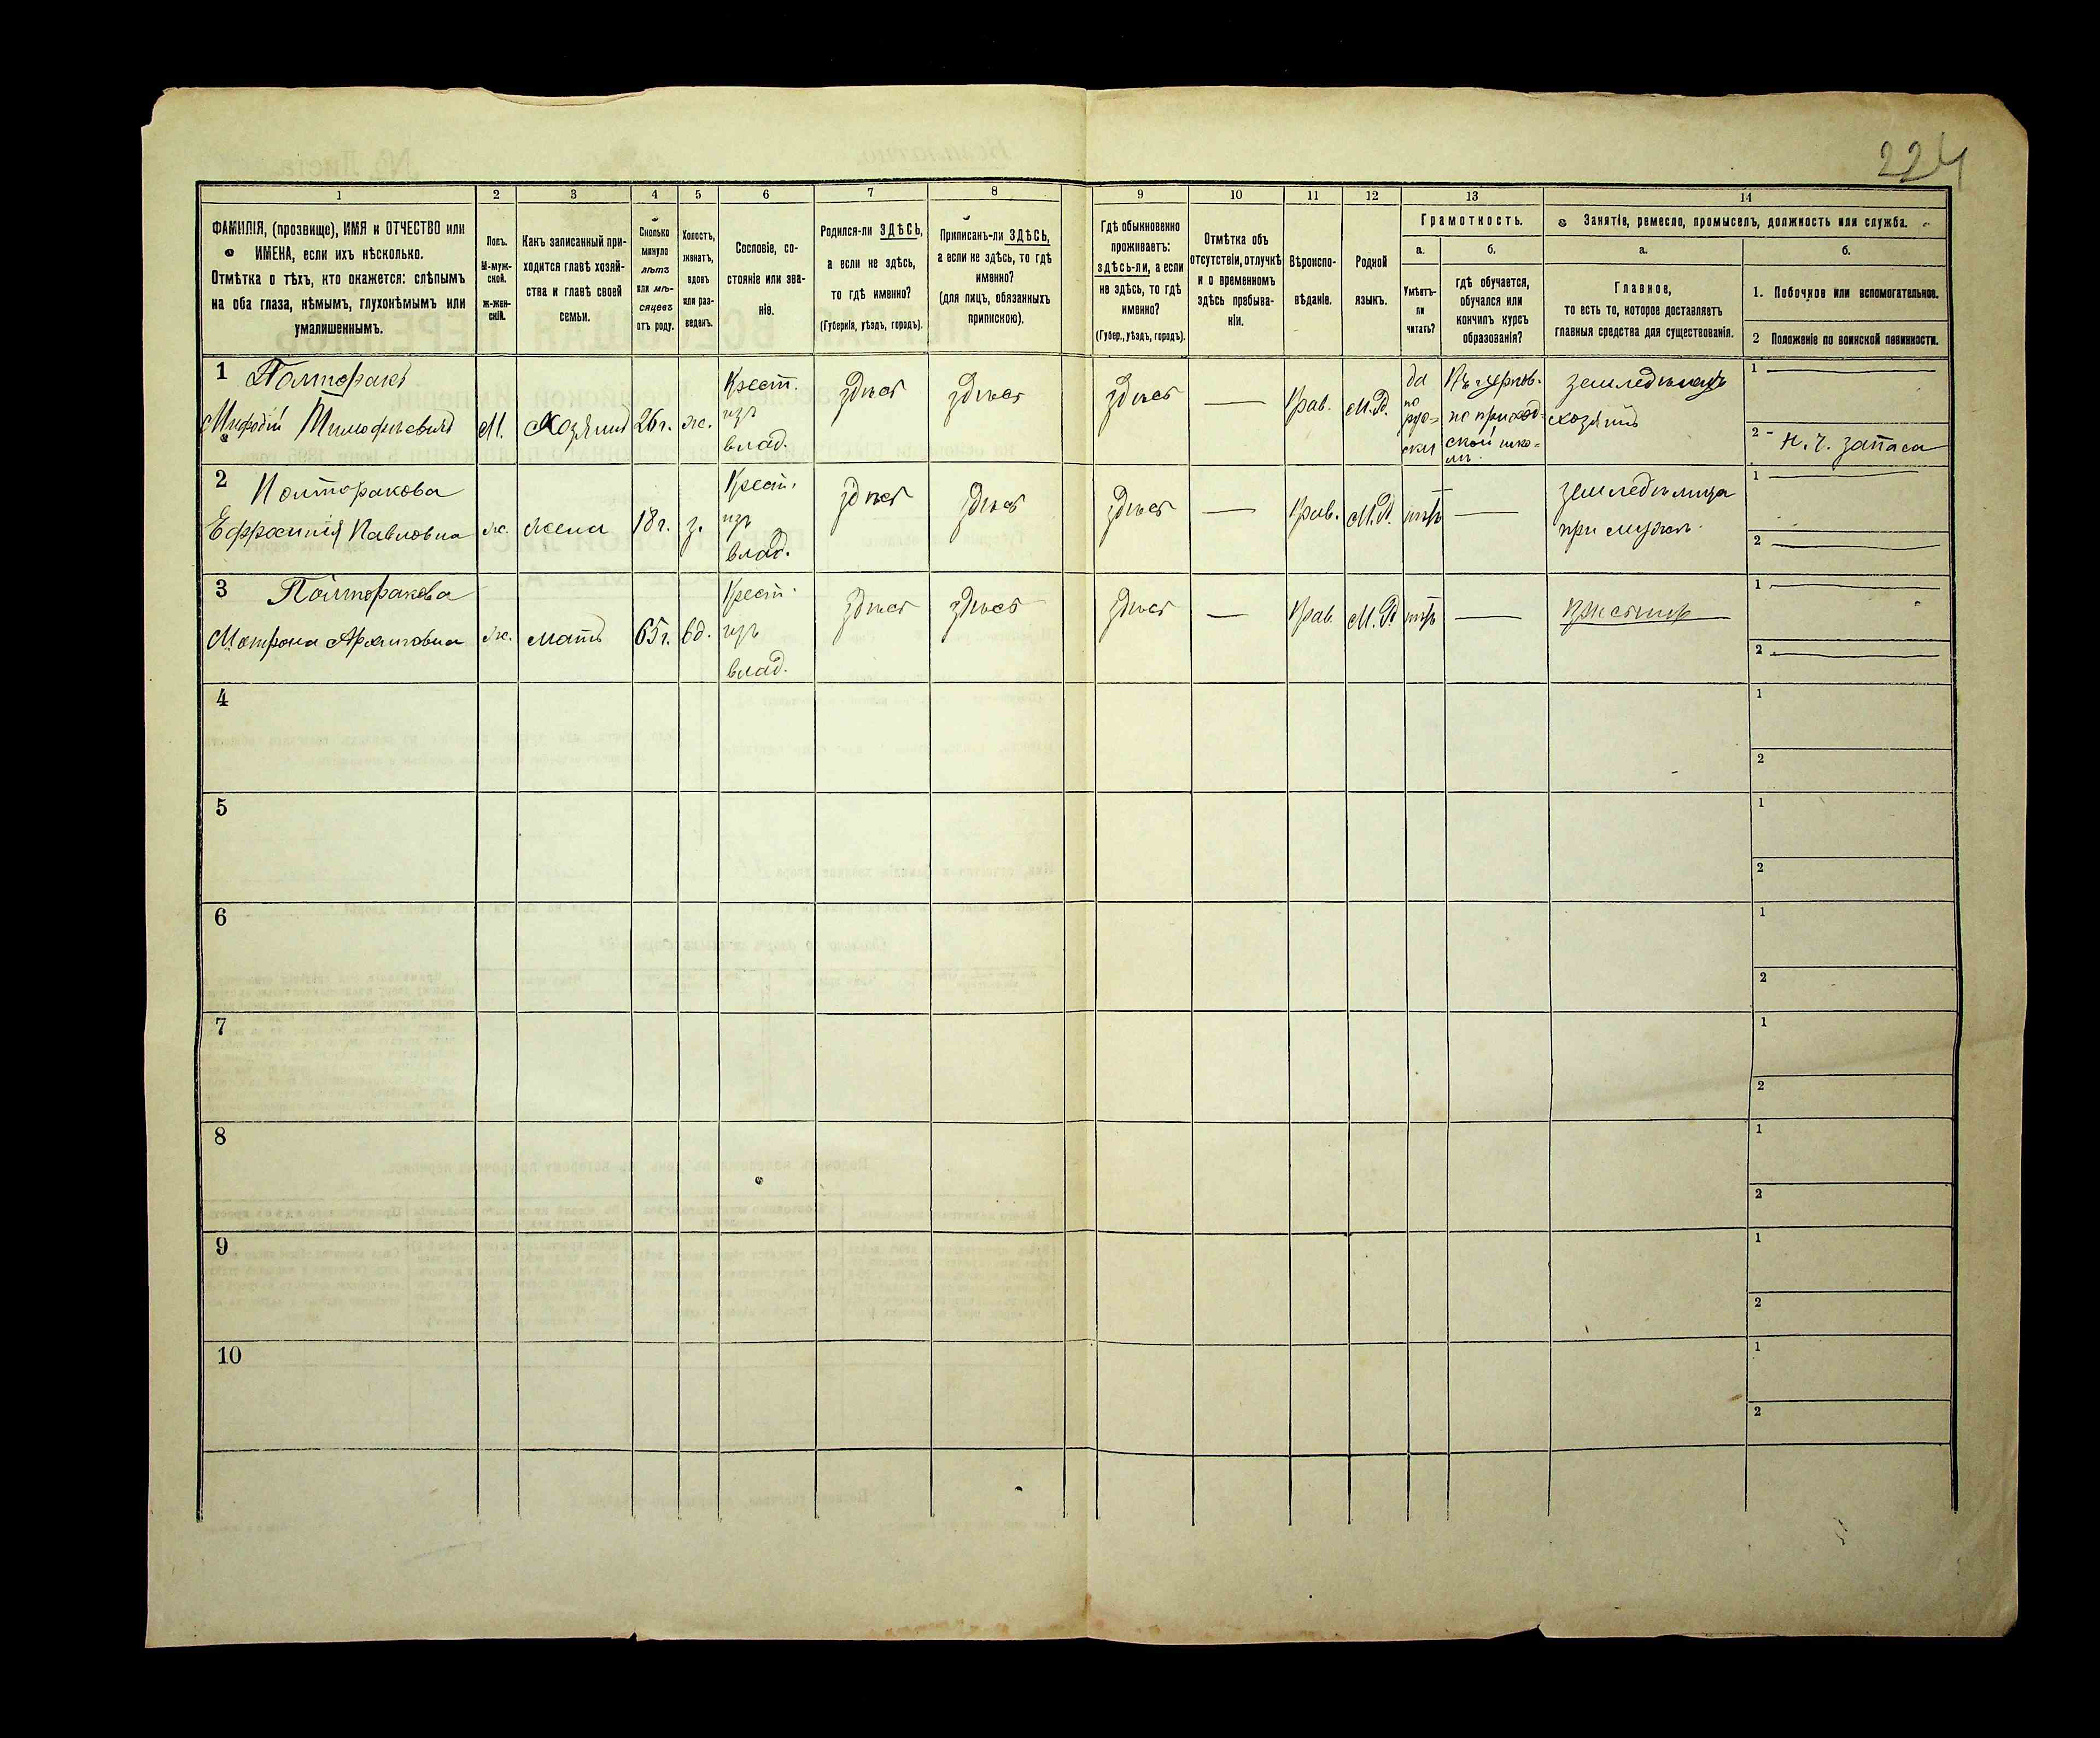 224
1
2
3
4
5
6
7
8
9
10
11
12
13
14
ФАМИЛІЯ, (прозвище), ИМЯ и ОТЧЕСТВО или
ИМЕНА, если ихъ нѣсколько.
Отмѣтка о тѣхъ, кто окажется: слѣпымъ
на оба глаза, нѣмымъ, глухонѣмымъ или
умалишеннымъ.
Полъ.
М-муж-
ской.
ж-жен-
скій.
Какъ записанный при-
ходится главѣ хозяй-
ства и главѣ своей
семьи.
Сколько
минуло
лѣтъ
или мѣ-
сяцевъ
отъ роду.
Холостъ,
женатъ,
вдовъ
или раз-
веденъ.
Сословіе, со-
стояніе или зва-
ніе.
Родился-ли ЗДѢСЬ,
а если не здѣсь,
то гдѣ именно?
(Губернія, уѣздъ, городъ).
Приписанъ-ли ЗДѢСЬ,
а если не здѣсь, то гдѣ
именно?
(для лицъ, обязанныхъ
припискою).
Гдѣ обыкновенно
проживаетъ:
здѣсь-ли, а если
не здѣсь, то гдѣ
именно?
(Губер., уѣздъ, городъ).
Отмѣтка объ
отсутствіи, отлучкѣ
и о временномъ
здѣсь пребыва-
ніи.
Вѣроиспо-
вѣданіе.
Родной
языкъ.
Грамотность.
а.
Умѣетъ-
ли
читать?
б.
гдѣ обучается,
обучался или
кончилъ курсъ
образованія?
Занятіе, ремесло, промыселъ, должность или служба.
а.
Главное,
то есть то, которое доставляетъ
главныя средства для существованія.
б.
1. Побочное или вспомогательное.
2 Положеніе по воинской повинности.
1 Полторакъ
Мифодій Тимофѣевичъ
М.
Хозяинъ
26 г.
ж.
Крест.
изъ
влад.
здѣсь
здѣсь
здѣсь
—
Прав.
М. Р.
да
по
рус-
ски
Въ церков-
но приход-
ской шко-
лѣ.
земледѣлецъ
хозяинъ
1 —
2 - н. ч. запаса
2 Полторакова
Ефросинія Павловна
ж.
жена
18 г.
з.
Крест.
изъ
влад.
здѣсь
здѣсь
здѣсь
—
Прав.
М. Р.
нѣтъ
—
земледѣлица
при мужѣ.
1 —
2 —
3 Полторакова
Матрона
ж.
мать
65 г.
вд.
Крест.
изъ
влад.
здѣсь
здѣсь
здѣсь
—
Прав.
М. Р.
нѣтъ
—
1 —
2 —
4
1
2
5
1
2
6
1
2
7
1
2
8
1
2
9
1
2
10
1
2